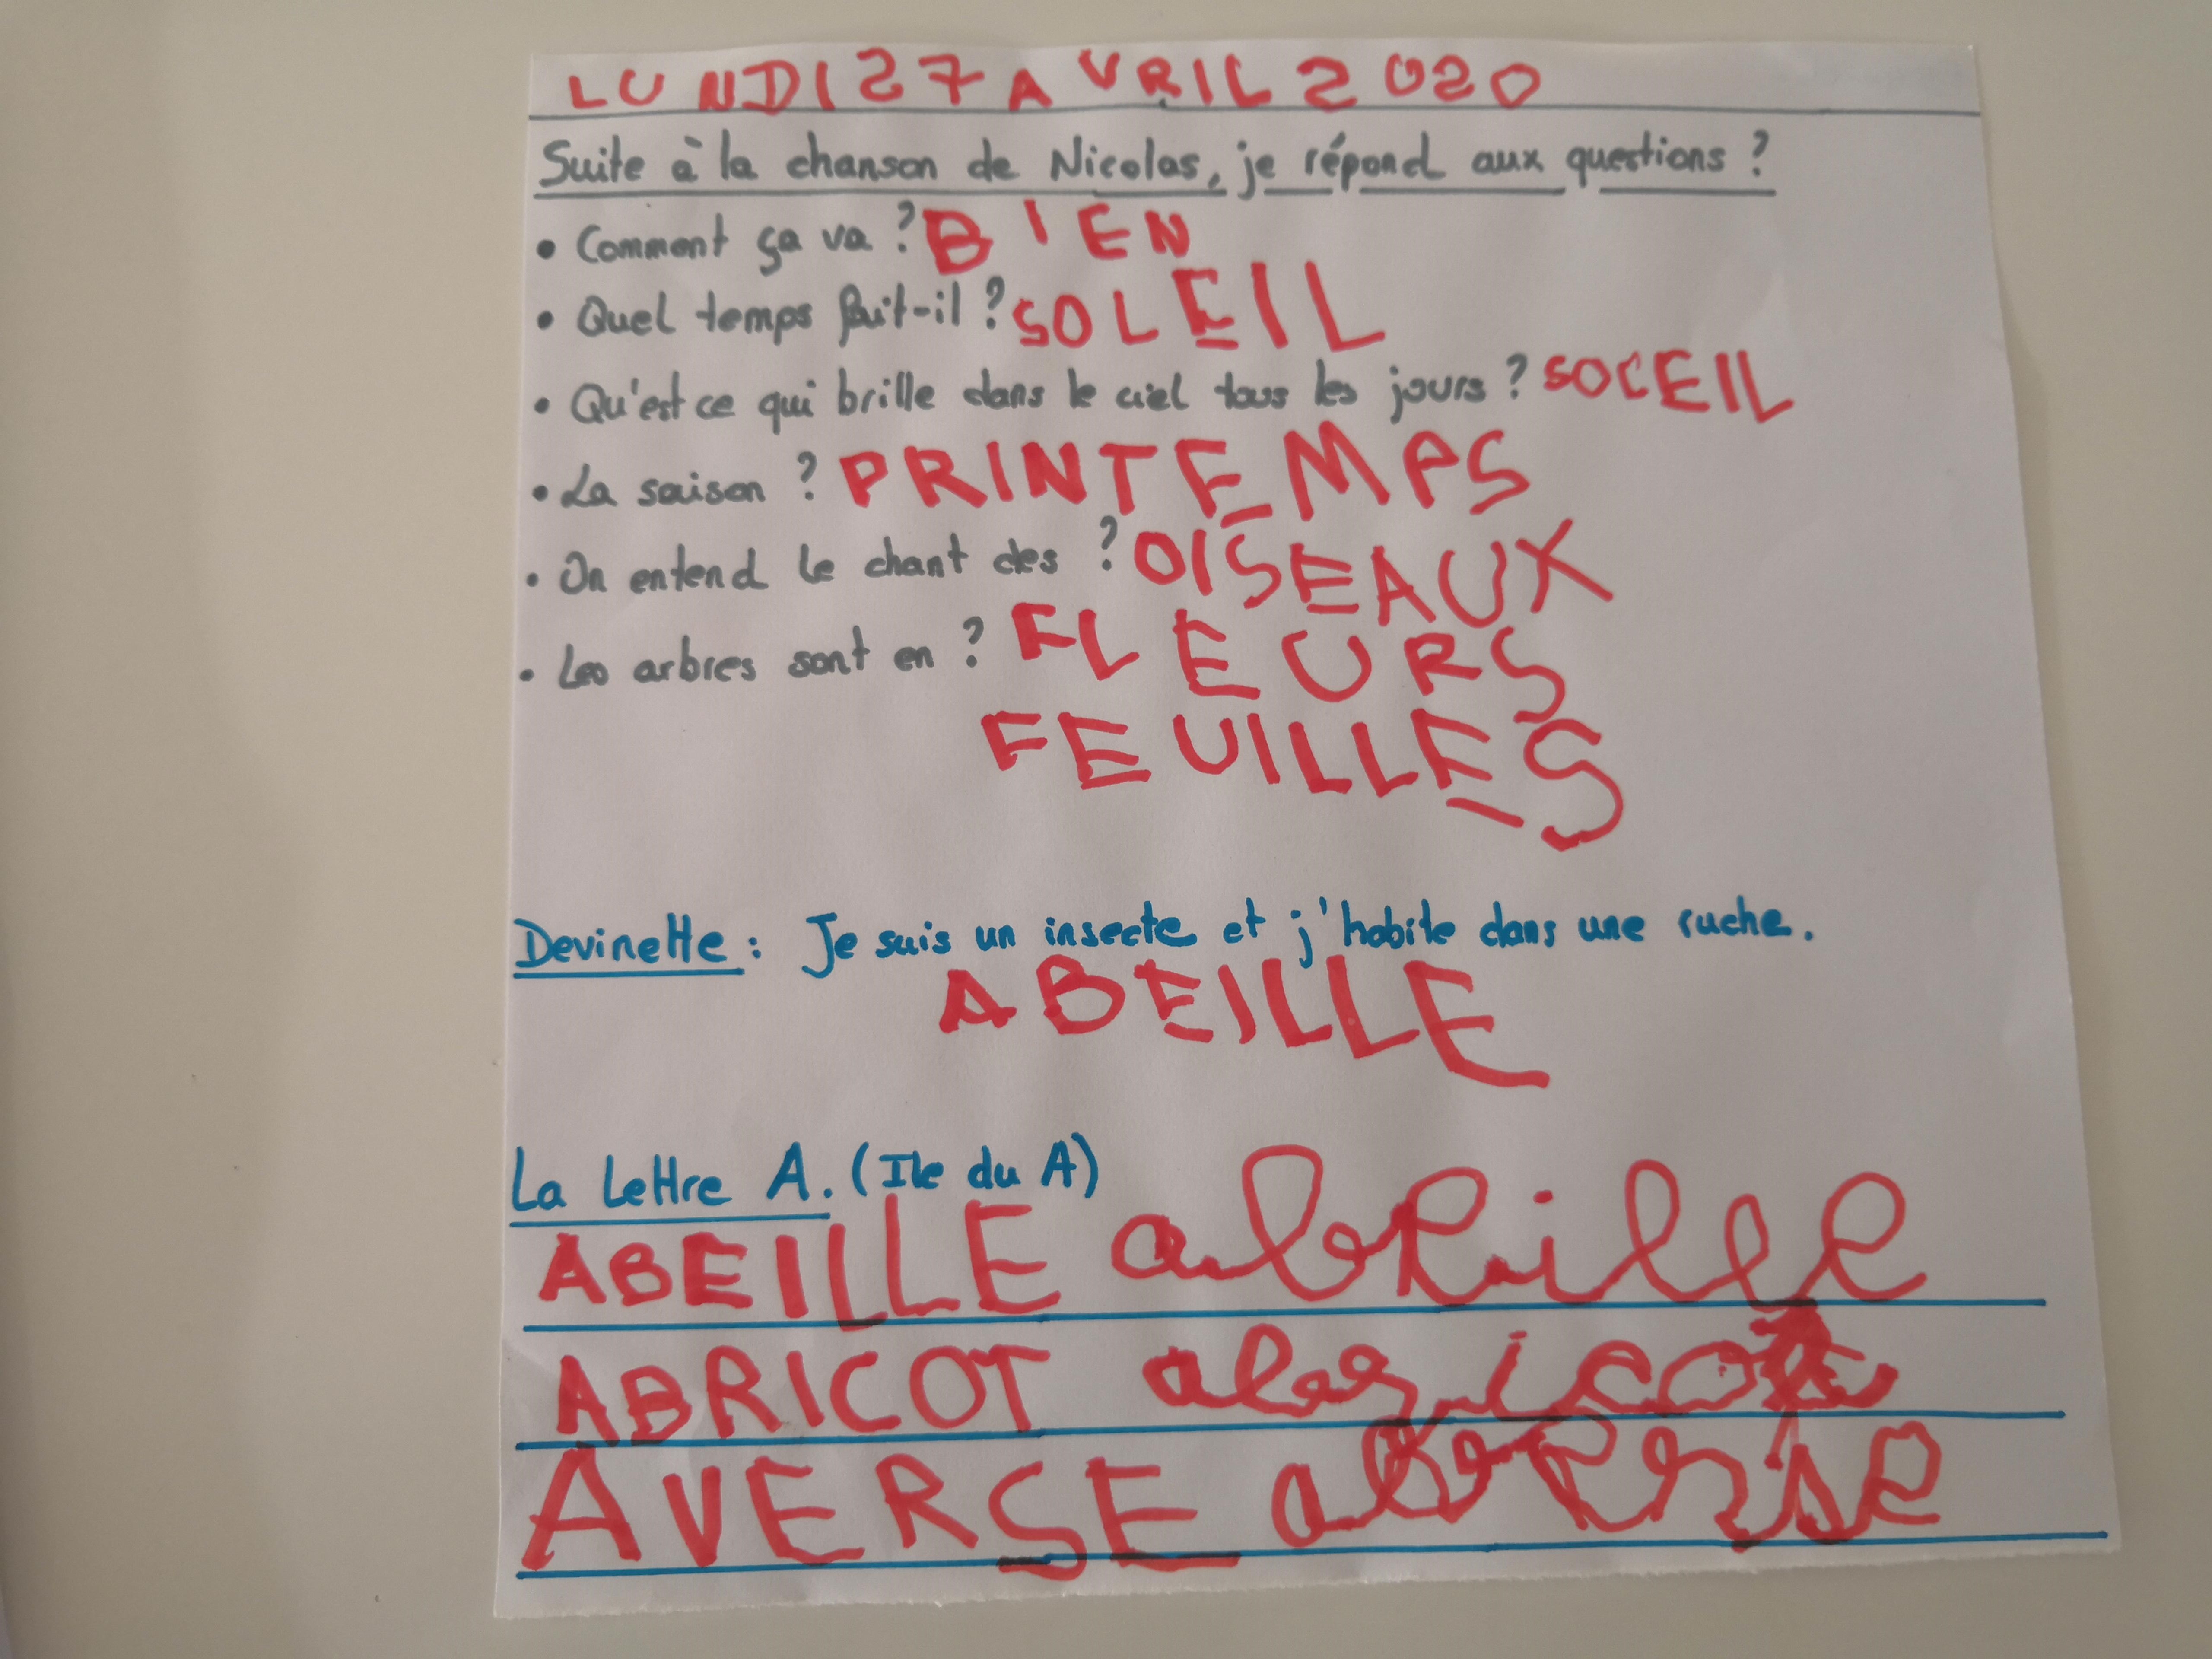 LUNDI 27 AVRIL 2020
Suite à la chanson de Nicolas, je répond aux questions ?
• Comment ça va ? BIEN
• Quel temps fait-il ? SOLEIL
• Qu'est ce qui brille dans le ciel tous les jours ? SOCEIL
• La saison ? PRINTEMPS
• On entend le chant des ? OISEAUX
• Les arbres sont en ? FLEURS
FEUILLES
Devinette : Je suis un insecte et j'habite dans une ruche.
ABEILLE
La Lettre A. (Ile du A)
ABEILLE abeille
ABRICOT abricot
AVERSE averse